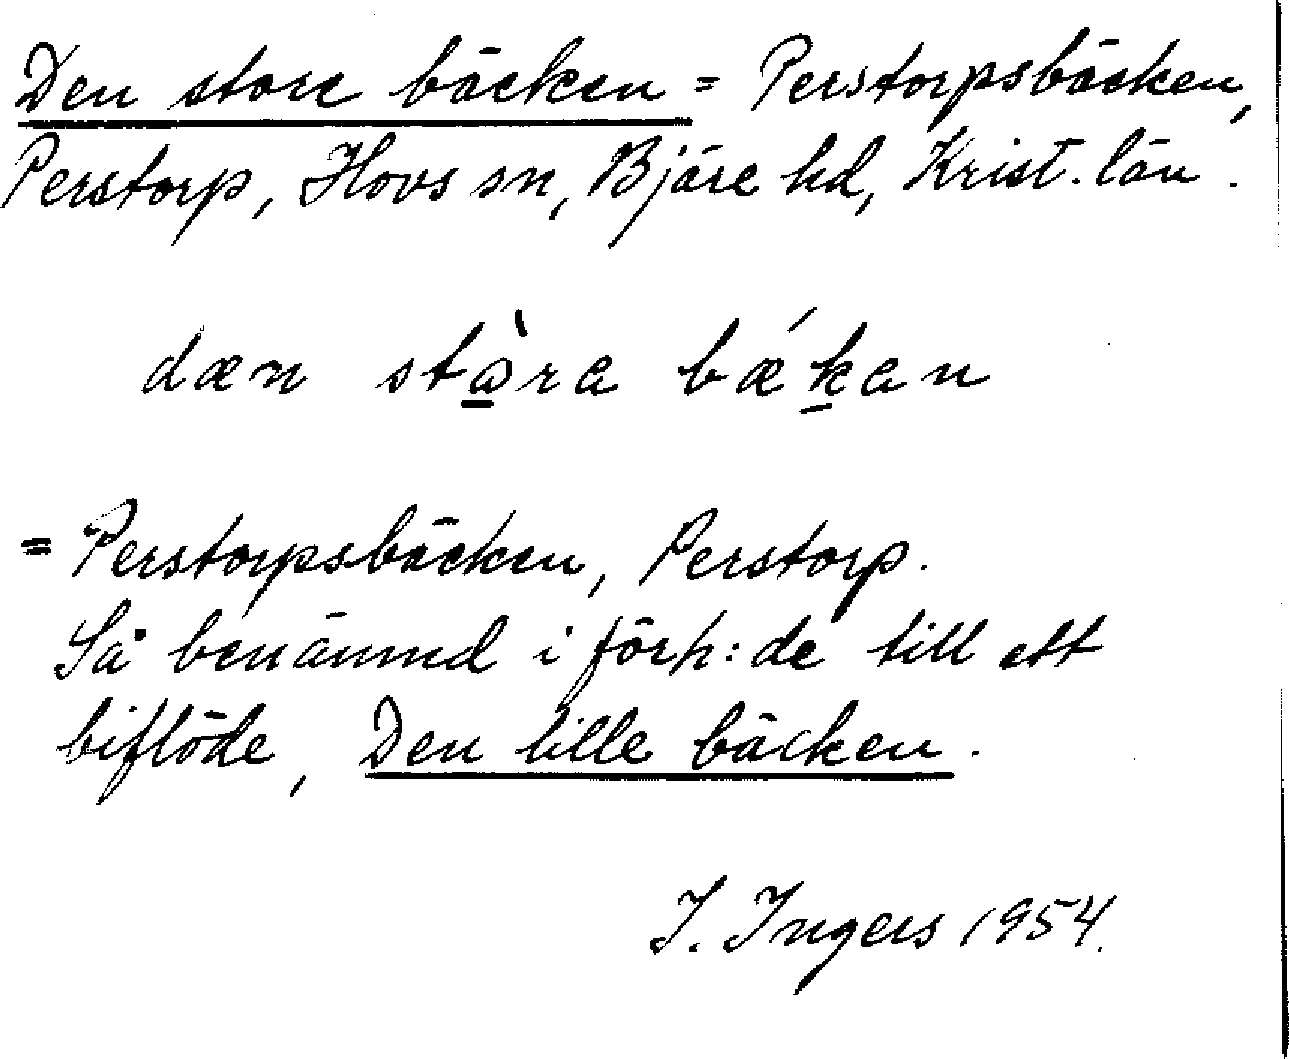 Den store bäcken = Perstorpsbäcken,
Perstorp, Hovs sn, Bjäre hd, Krist. län.
dæn stὰ̱ra bǽḵan
= Perstorpsbäcken, Perstorp.
Så benämnd i förh:de till ett
biflöde, Den lille bäcken.
I. Ingers 1954.